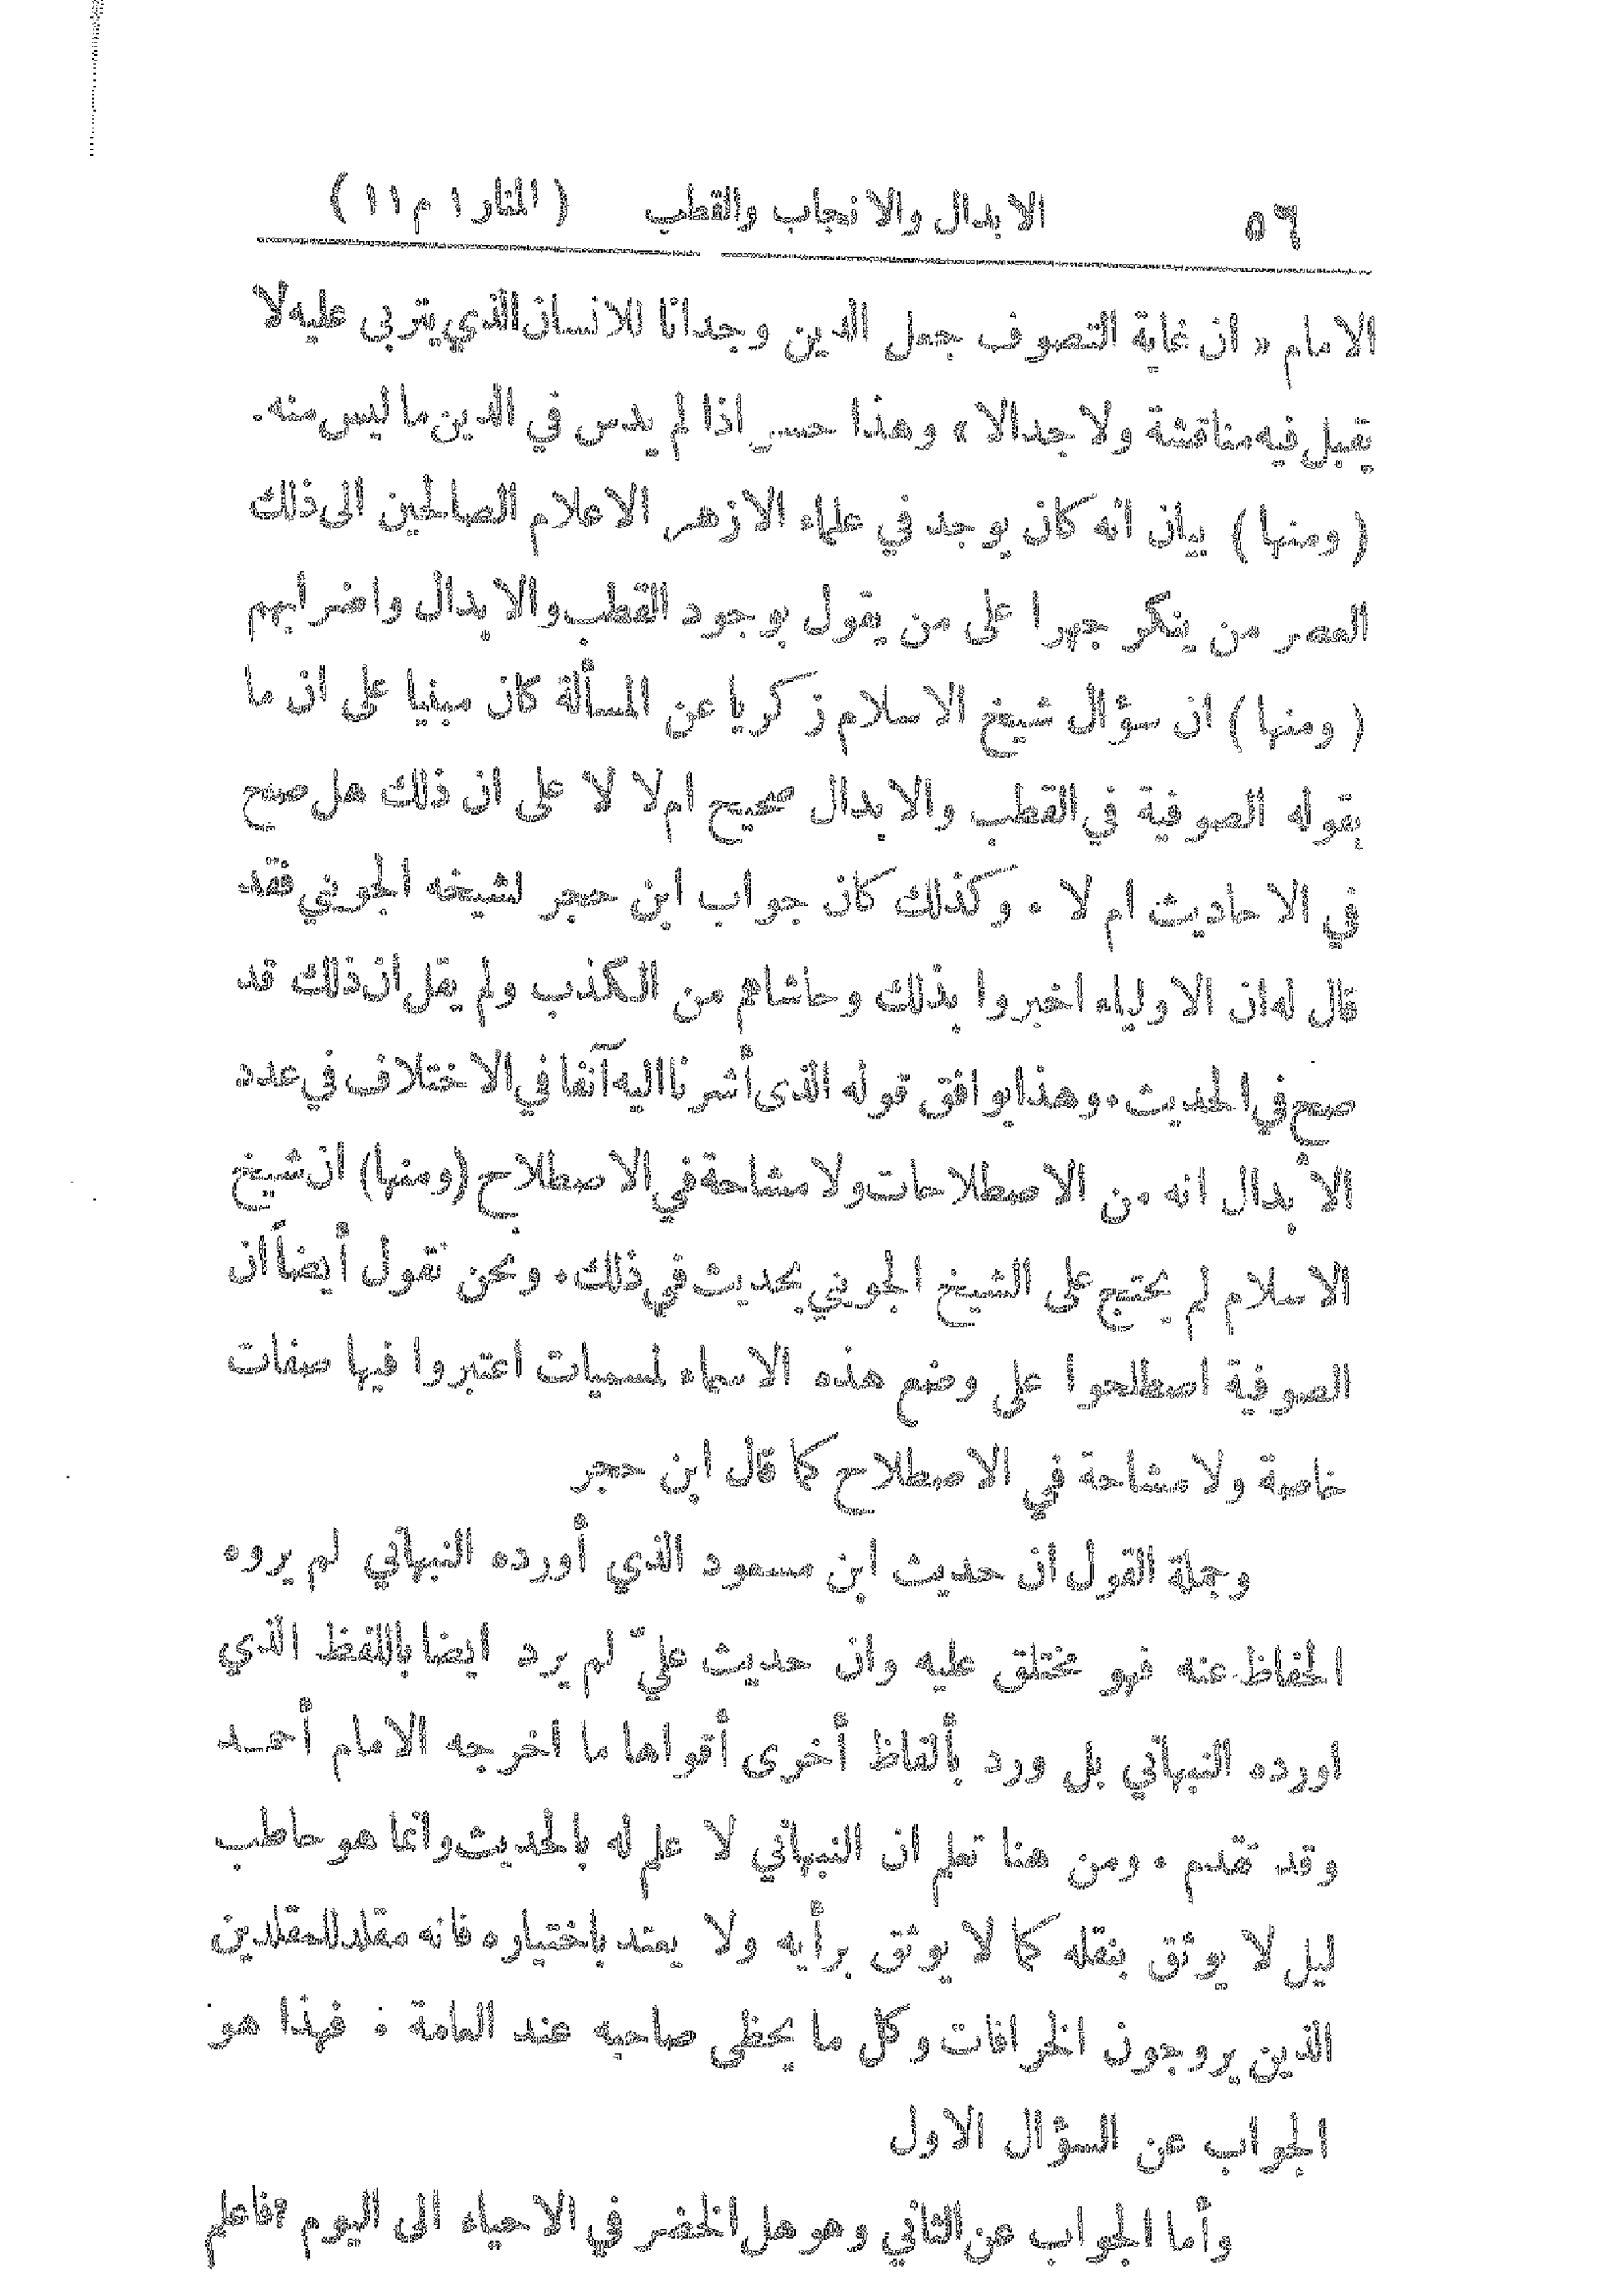 ٥٦ الابدال والانجاب والقطب (المنار ١ م ١١)
الامام « ان غاية التصوف جعل الدين وجدانا للانسان الذي يتربى عليه لا
يقبل فيه مناقشة ولا جدالا» وهذا حسن اذا لم يدس في الدين ما ليس منه.
(ومنها) بيان انه كان يوجد في علماء الازهر الاعلام الصالحين الى ذلك
العصر من ينكر جهرا على من يقول بوجود القطب والابدال واضرابهم
(ومنها) ان سؤال شيخ الاسلام زكريا عن المسألة كان مبنيا على ان ما
يقوله الصوفية في القطب والابدال صحيح ام لا لا على ان ذلك هل صح
في الاحاديث ام لا . وكذلك كان جواب ابن حجر لشيخه الجويني فقد
قال له ان الاولياء اخبروا بذلك وحاشاهم من الكذب ولم يقل ان ذلك قد
صح في الحديث . وهذا يوافق قوله الذى أشرنا اليه آنفا في الاختلاف في عدد
الابدال انه من الاصطلاحات ولا مشاحة في الاصطلاح (ومنها) ان شيخ
الاسلام لم يحتج على الشيخ الجويني بحديث في ذلك . ونحن نقول أيضاً ان
الصوفية اصطلحوا على وضع هذه الاسماء لمسميات اعتبروا فيها صفات
خاصة ولا مشاحة في الاصطلاح كما قال ابن حجر
وجملة القول ان حديث ابن مسعود الذي أورده النبهاني لم يروه
الحفاظ عنه فهو مختلق عليه وان حديث عليّ لم يرد ايضا باللفظ الذي
اورده النبهاني بل ورد بألفاظ أخرى أقواها ما اخرجه الامام أحمد
وقد تقدم . ومن هنا تعلم ان النبهاني لا علم له بالحديث وانما هو حاطب
ليل لا يوثق بنقله كما لا يوثق برأيه ولا يعتد باختياره فانه مقلد للمقلدين
الذين يروجون الخرافات وكل ما يحظى صاحبه عند العامة : فهذا هو
الجواب عن السؤال الاول
وأما الجواب عن الثاني وهو هل الخضر في الاحياء الى اليوم ؟ فاعلم